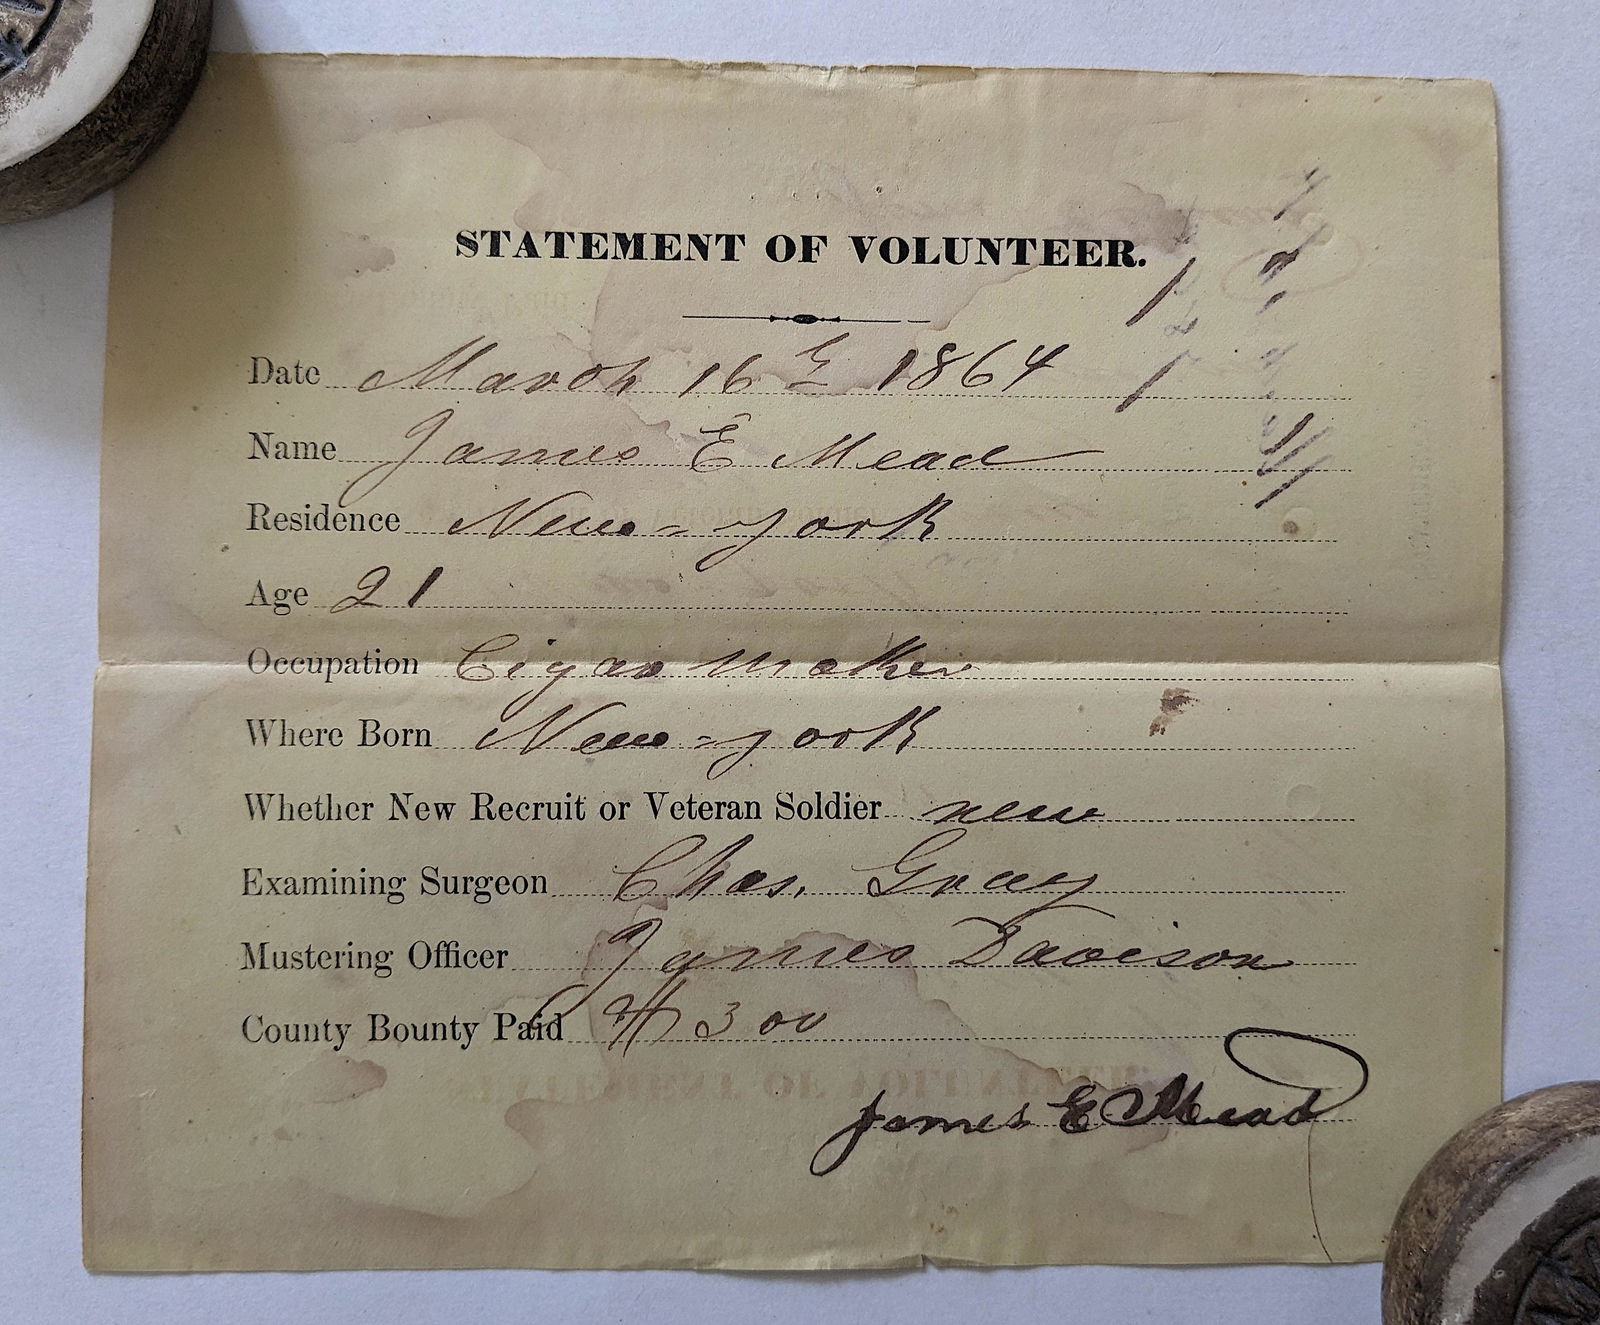 STATEMENT OF VOLUNTEER.
Date March 16th 1864
Name James E Mead
Residence New-york
Age 21
Occupation Cigar maker
Where Born New-york
Whether New Recruit or Veteran Soldier new
Examining Surgeon Chas. Gray
Mustering Officer James Davison
County Bounty Paid $300
James E Mead